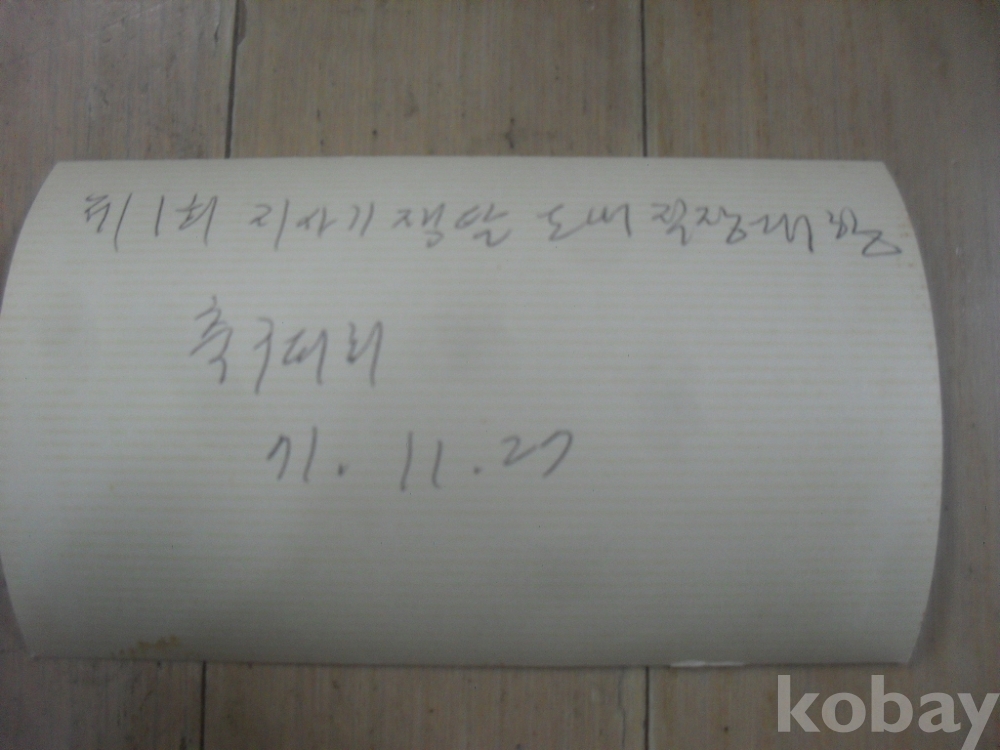 제1회 지사기 쟁탈 도내 직장대항
축구대회
71. 11. 27
kobay